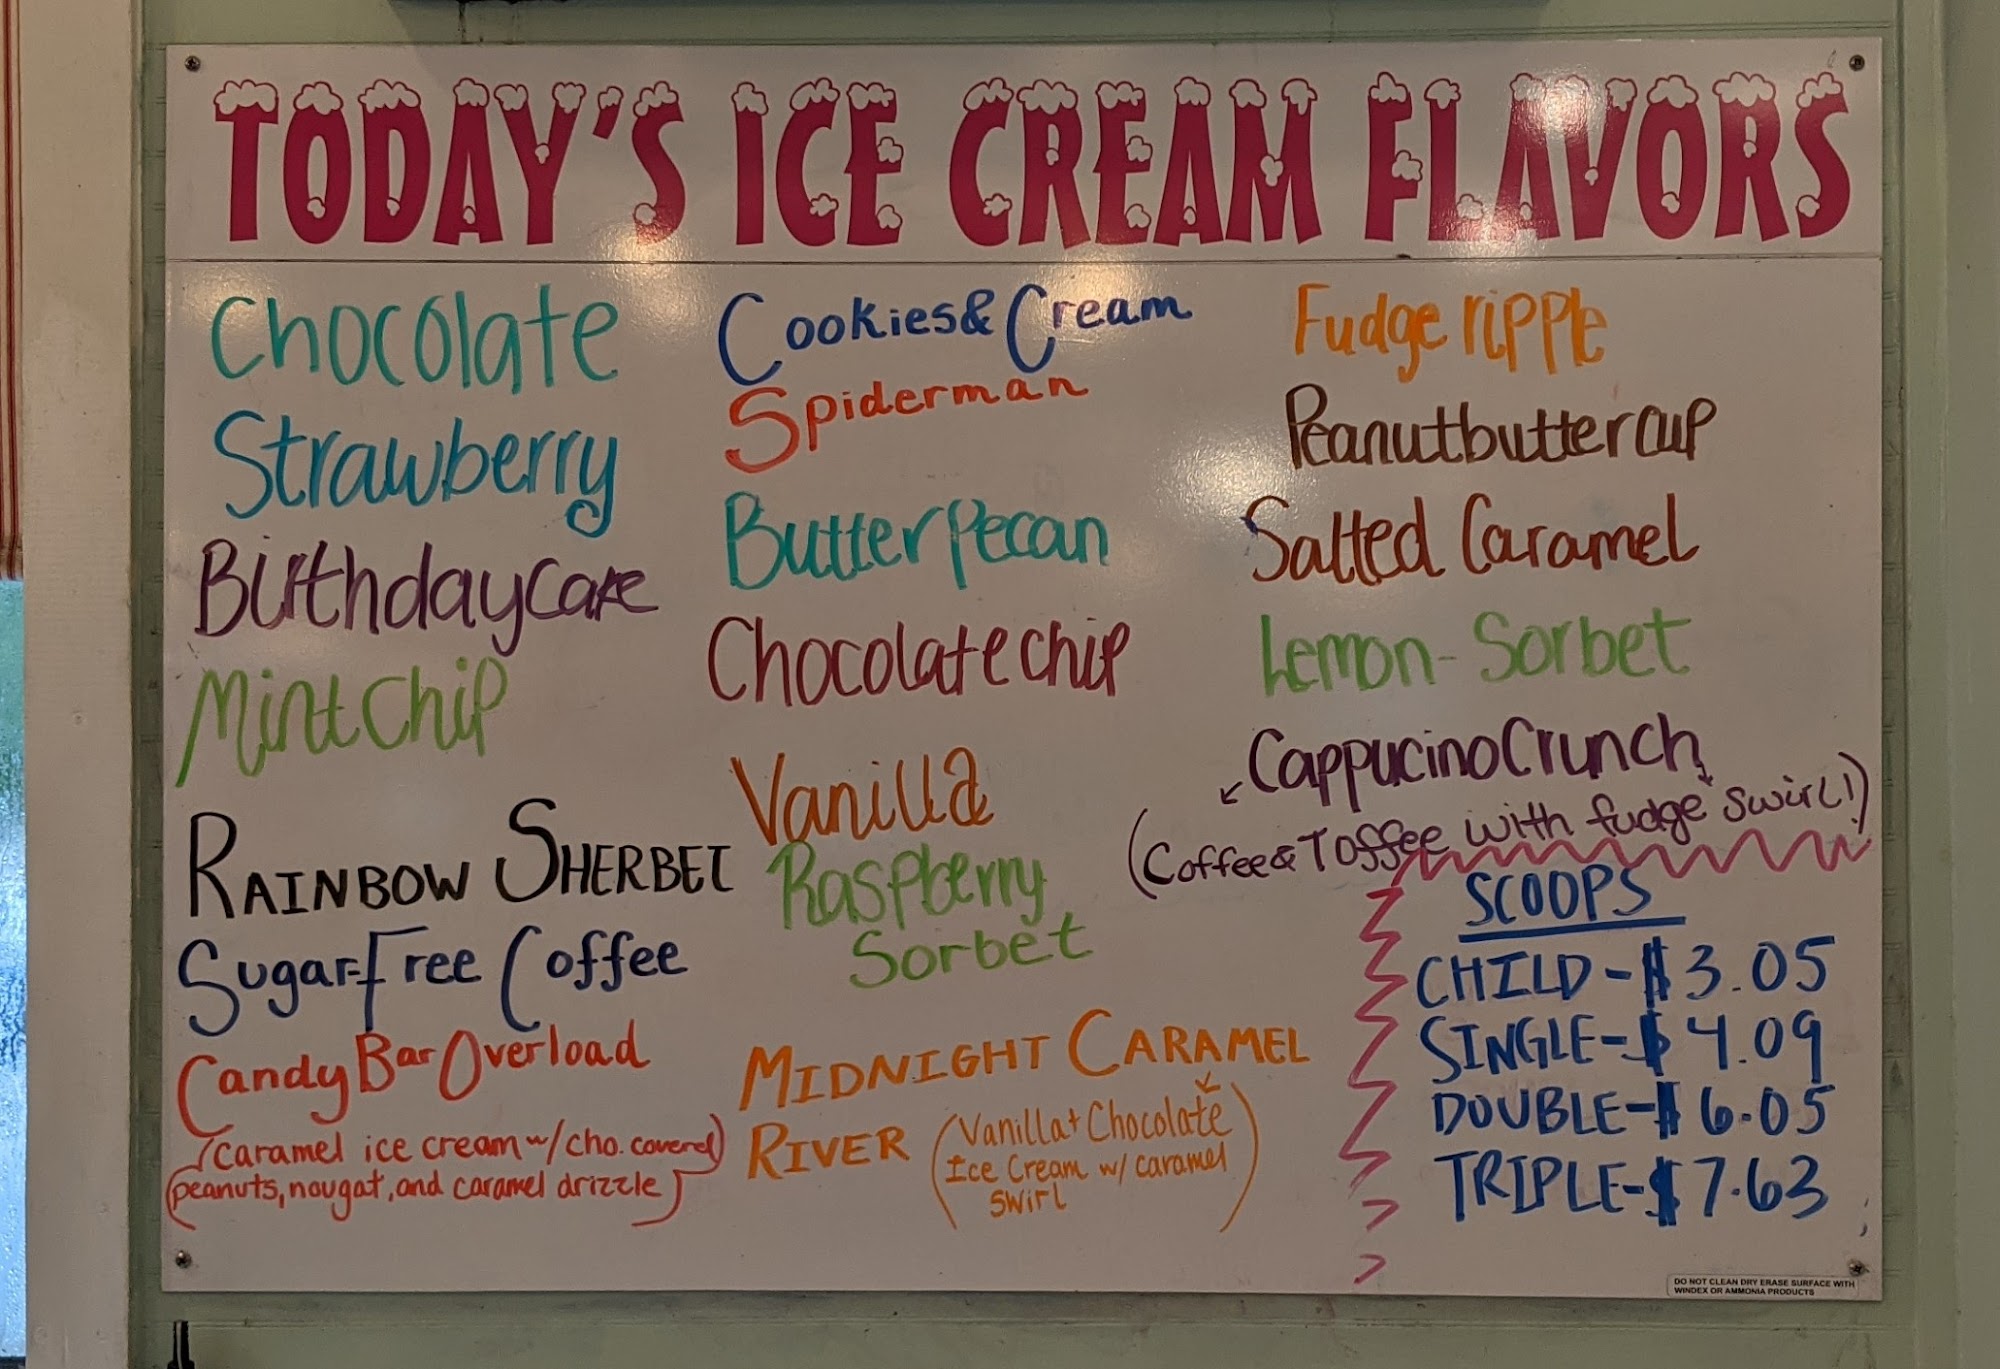 TODAY'S ICE CREAM FLAVORS
Chocolate
Strawberry
Birthdaycake
Mint Chip
RAINBOW SHERBET
Sugar-Free Coffee
Candy Bar Overload
(caramel ice cream w/cho. covered
peanuts, nougat, and caramel drizzle)
Cookies & Cream
Spiderman
Butter Pecan
Chocolate chip
Vanilla
Raspberry
Sorbet
MIDNIGHT CARAMEL
RIVER
(Vanilla + Chocolate
Ice Cream w/ caramel
swirl)
Fudge ripple
Peanutbutter cup
Salted Caramel
Lemon-Sorbet
Cappucino Crunch
(Coffee & Toffee with fudge swirl!)
SCOOPS
CHILD - $3.05
SINGLE - $4.09
DOUBLE - $6.05
TRIPLE - $7.63
DO NOT CLEAN DRY ERASE SURFACE WITH
WINDEX OR AMMONIA PRODUCTS